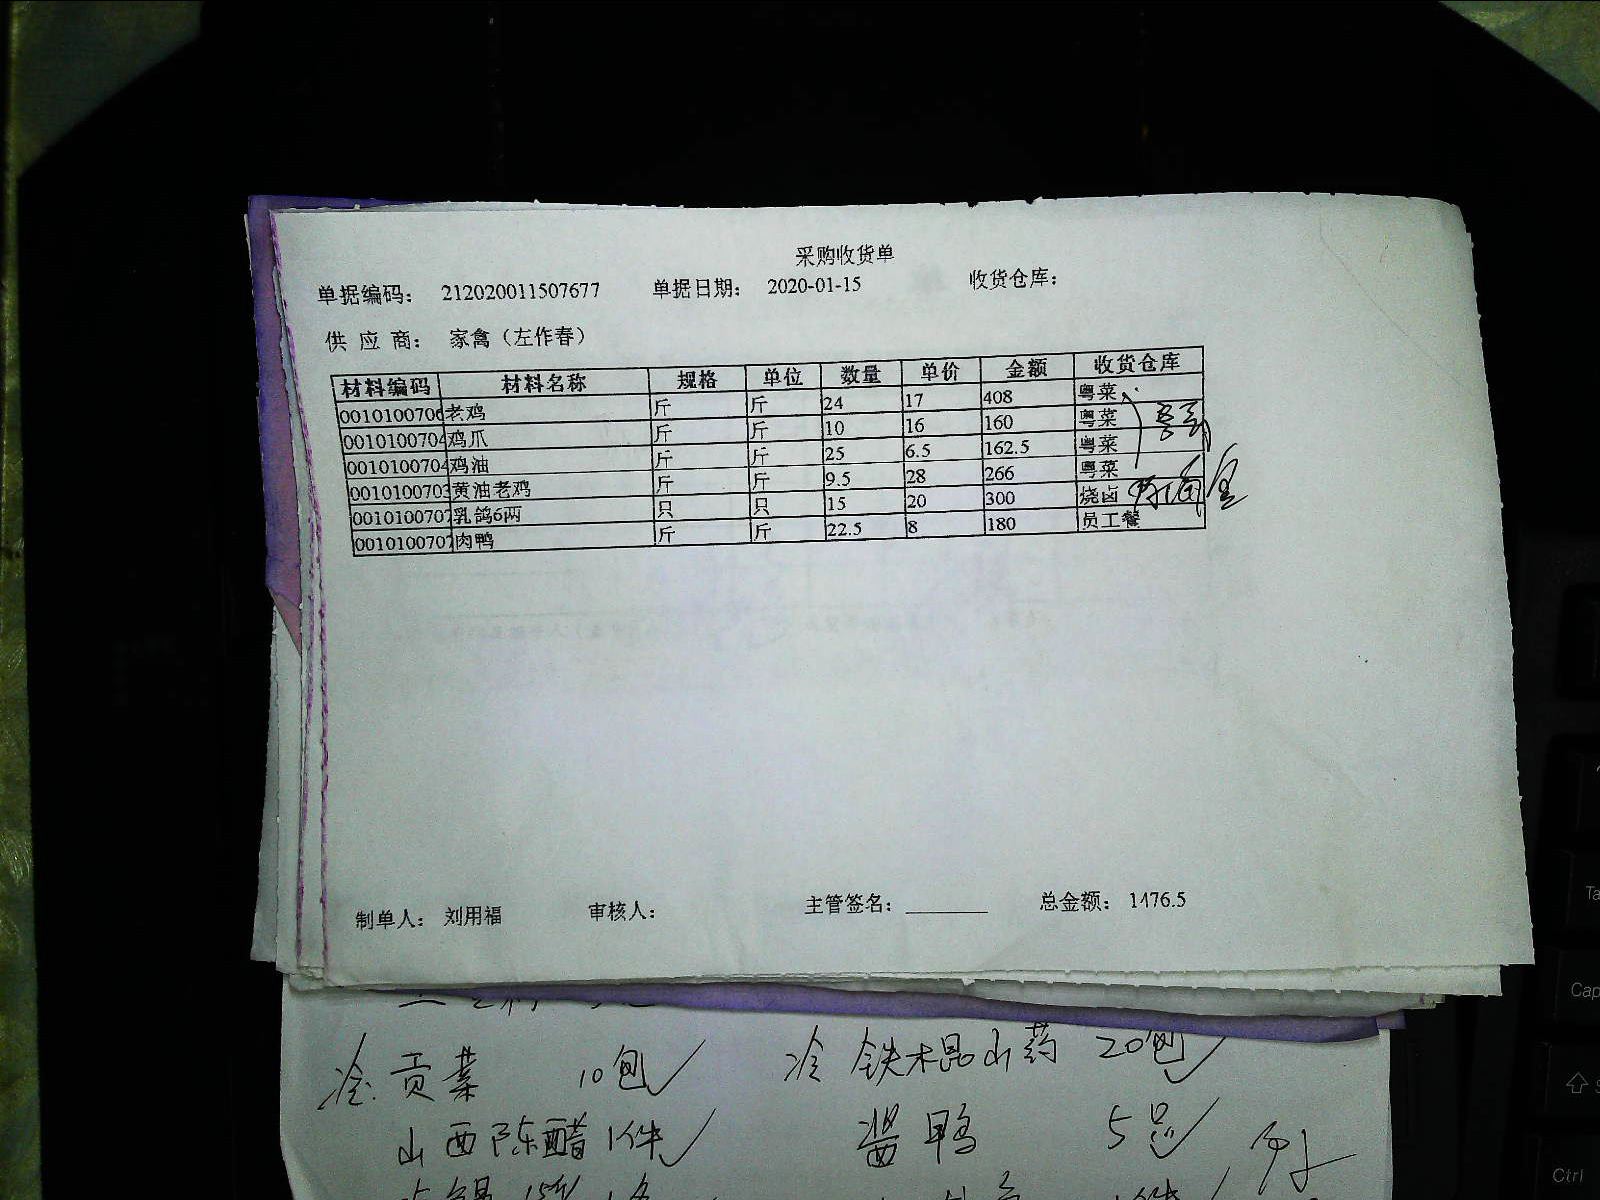 采购收货单
单据编码： 212020011507677 单据日期： 2020-01-15 收货仓库：
供 应 商： 家禽（左作春）
材料编码 材料名称 规格 单位 数量 单价 金额 收货仓库
0010100706 老鸡 斤 斤 24 17 408 粤菜
0010100704 鸡爪 斤 斤 10 16 160 粤菜
0010100704 鸡油 斤 斤 25 6.5 162.5 粤菜
0010100703 黄油老鸡 斤 斤 9.5 28 266 粤菜
0010100707 乳鸽6两 只 只 15 20 300 烧卤
0010100707 肉鸭 斤 斤 22.5 8 180 员工餐
制单人： 刘用福 审核人： 主管签名： 总金额： 1476.5
冷 贡菜 10包 冷 铁木棍山药 20包
山西陈醋 1件 酱鸭 5只
Cap
Ctrl